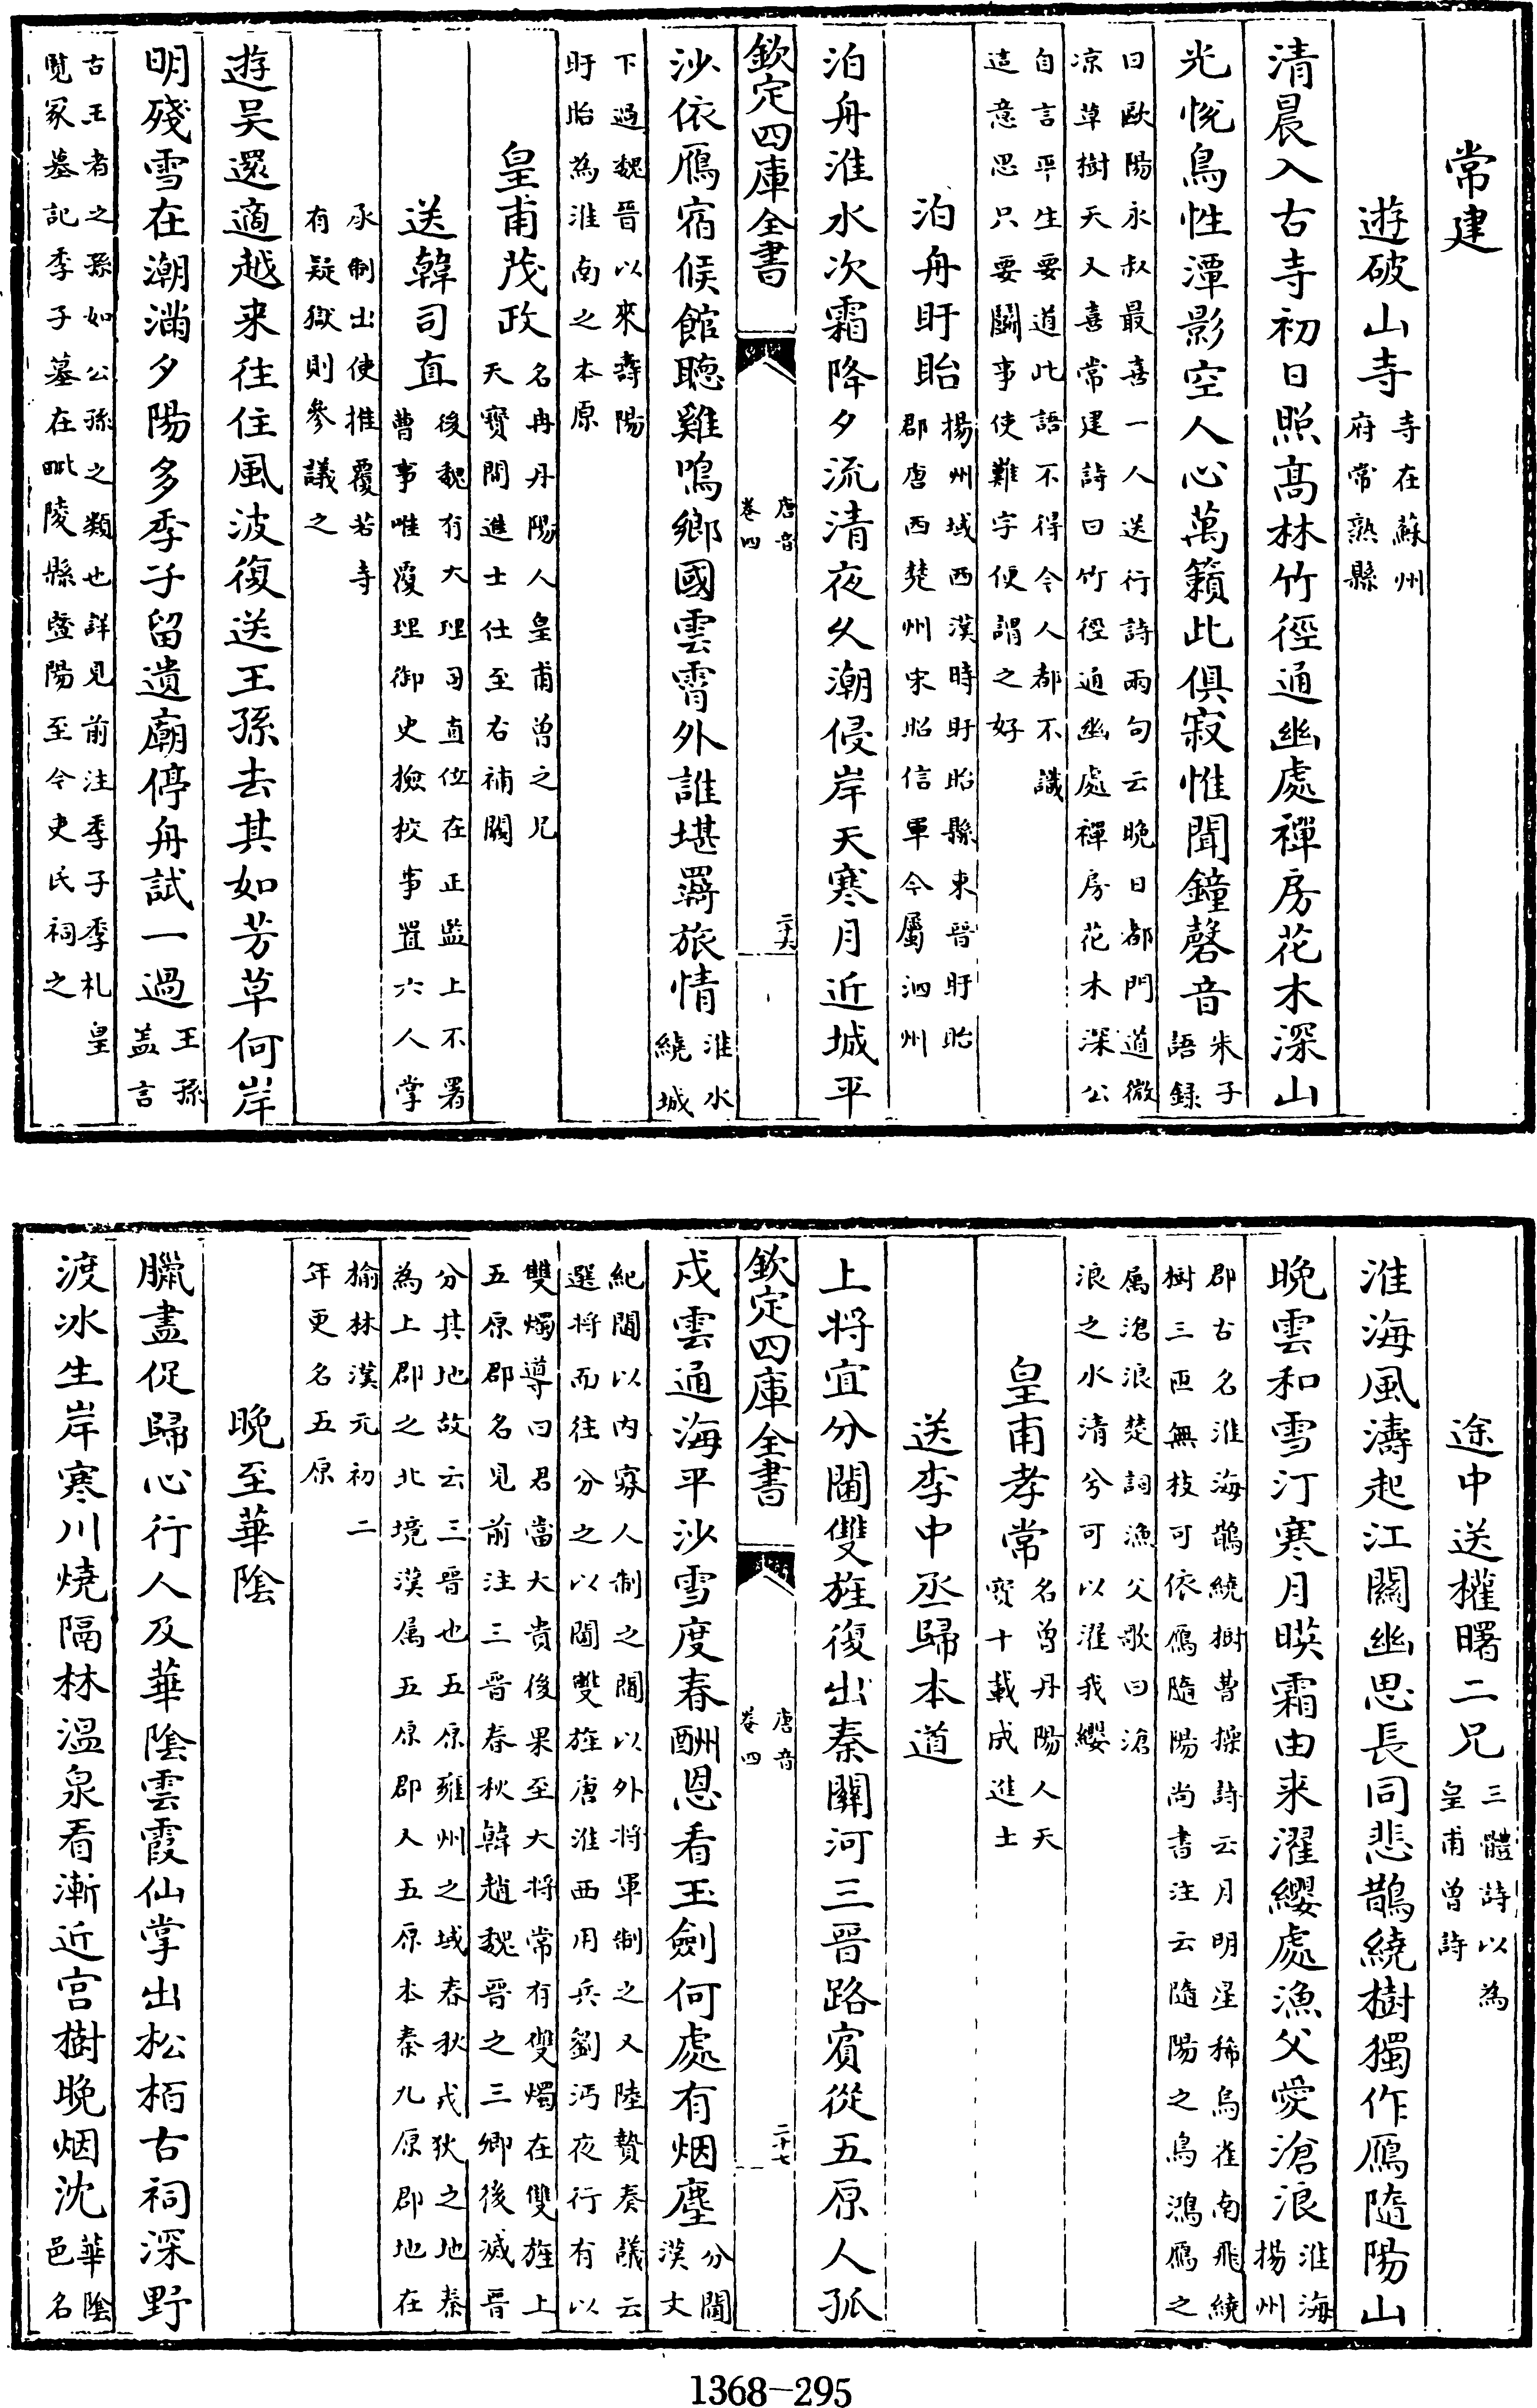 常建
遊破山寺寺在蘇州府常熟縣
清晨入古寺初日照髙林竹徑通幽處禪房花木深山
光悦鳥性潭影空人心萬籟此俱寂惟聞鐘磬音朱子語録
曰歐陽永叔最喜一人送行詩兩句云晩日都門道微
凉草樹天又喜常建詩曰竹徑通幽處禪房花木深公
自言平生要道此語不得今人都不識
這意思只要闘事使難字便謂之好
泊舟盱眙揚州域西漢時盱眙縣東晉盱眙郡唐西楚州宋昭信軍今屬泗州
泊舟淮水次霜降夕流清夜久潮侵岸天寒月近城平
欽定四庫全書 唐音卷四 二十六
沙依鴈宿候館聴雞鳴鄉國雲霄外誰堪羇旅情淮水繞城
下過魏晉以來壽陽
盱眙為淮南之本原
皇甫茂政名冉丹陽人皇甫曽之兄天寳間進士仕至右補闕
送韓司直後魏有大理司直位在正監上不署曹事唯覆理御史撿校事置六人掌
承制出使推覆若寺
有疑獄則參議之
遊吴還適越来往住風波復送王孫去其如芳草何岸
明殘雪在潮滿夕陽多季子留遺廟停舟試一過王孫盖言
古王者之孫如公孫之類也詳見前注季子季札皇
覧冢墓記季子墓在毗陵縣暨陽至今吏民祠之
途中送權曙二兄三體詩以為皇甫曽詩
淮海風濤起江關幽思長同悲鵲繞樹獨作鴈隨陽山
晩雲和雪汀寒月暎霜由来濯纓處漁父愛滄浪淮海揚州
郡古名淮海鵲繞樹曹操詩云月明星稀烏雀南飛繞
樹三匝無枝可依鴈隨陽尚書注云隨陽之鳥鴻鴈之
属滄浪楚詞漁父歌曰滄
浪之水清兮可以濯我纓
皇甫孝常名曽丹陽人天寳十載成進士
送李中丞歸本道
上将宜分閫雙旌復出秦關河三晉路賓從五原人孤
欽定四庫全書 唐音卷四 二十七
戍雲通海平沙雪度春酬恩看玉劍何處有烟塵分閫漢文
紀閫以内寡人制之閫以外将軍制之又陸贄奏議云
選将而往分之以閫雙旌唐淮西用兵劉沔夜行有以
雙燭導曰君當大貴後果至大将常有雙燭在雙旌上
五原郡名見前注三晉春秋韓趙魏晉之三卿後滅晉
分其地故云三晉也五原雍州之域春秋戎狄之地秦
為上郡之北境漢属五原郡人五原本秦九原郡地在
榆林漢元初二
年更名五原
晩至華隂
臘盡促歸心行人及華隂雲霞仙掌出松栢古祠深野
渡冰生岸寒川燒隔林溫泉看漸近宫樹晩烟沈華隂邑名
1368-295